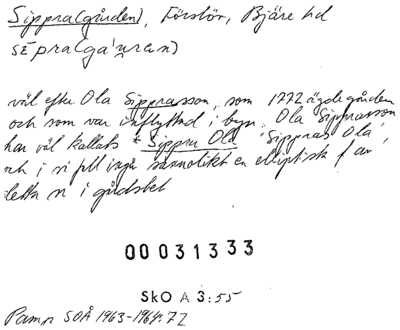 Sippra(gården), Förslöv, Bjäre hd
sẹpra(ga'uran)
väl efter Ola Sipprasson, som 1772 ägde gården
och som var inflyttad i byn. Ola Sipprasson
har väl kallats * Sippra Ola 'Sippras Ola',
och i så fall ingår sannolikt en elliptisk f av
detta i gårdsbet
00031333
SkO A 3:55
Pamp SOÅ 1963-1964:72